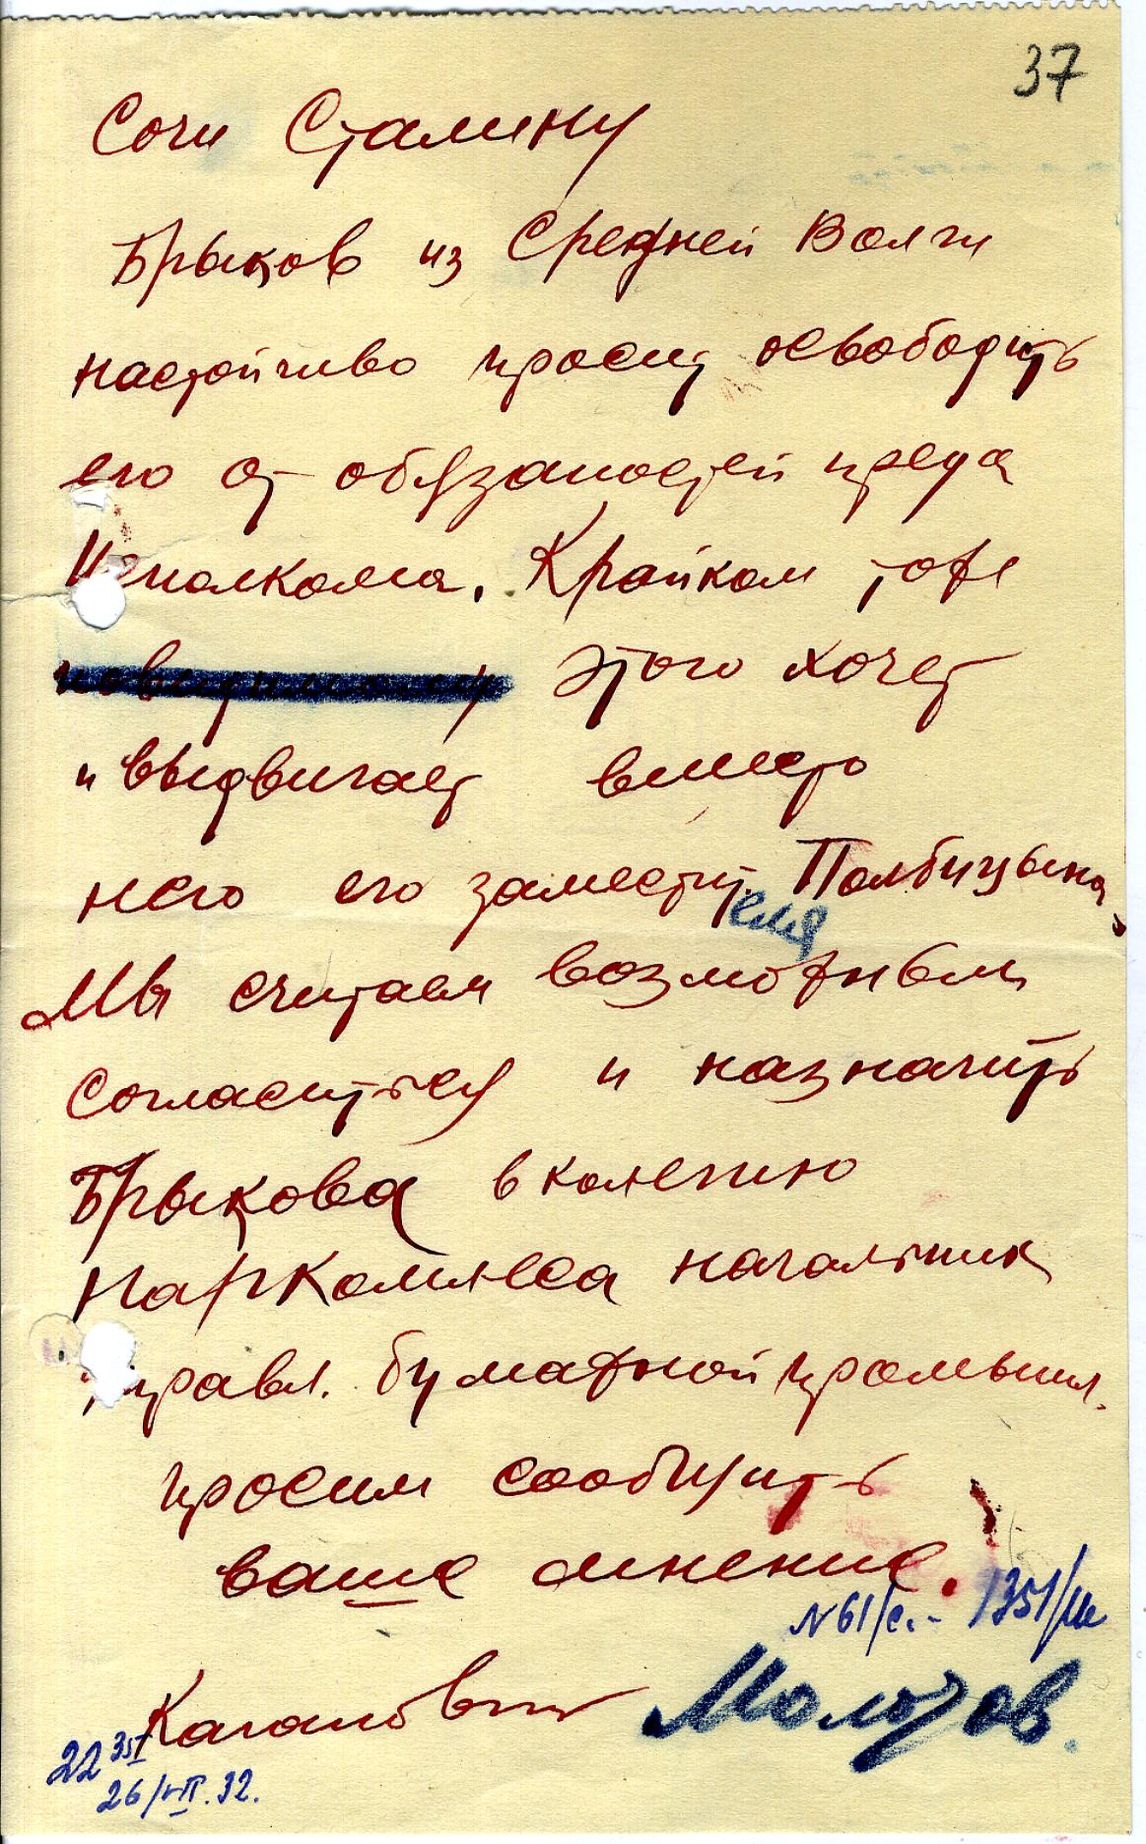 37
Сочи Сталину
Брыков из Средней Волги
настойчиво просит освободить
его от обязаностей преда
Исполкома. Крайком тоже
этого хочет
и выдвигает вместо
него его заместителя Полбицына.
Мы считаем возможным
согласиться и назначить
Брыкова в колегию
Наркомлеса начальник
управл. бумажной промышл.
просим сообщить
ваше мнение.
N 61/с. - 1351/ш
Каганович Молотов.
22 35
26/VII.32.